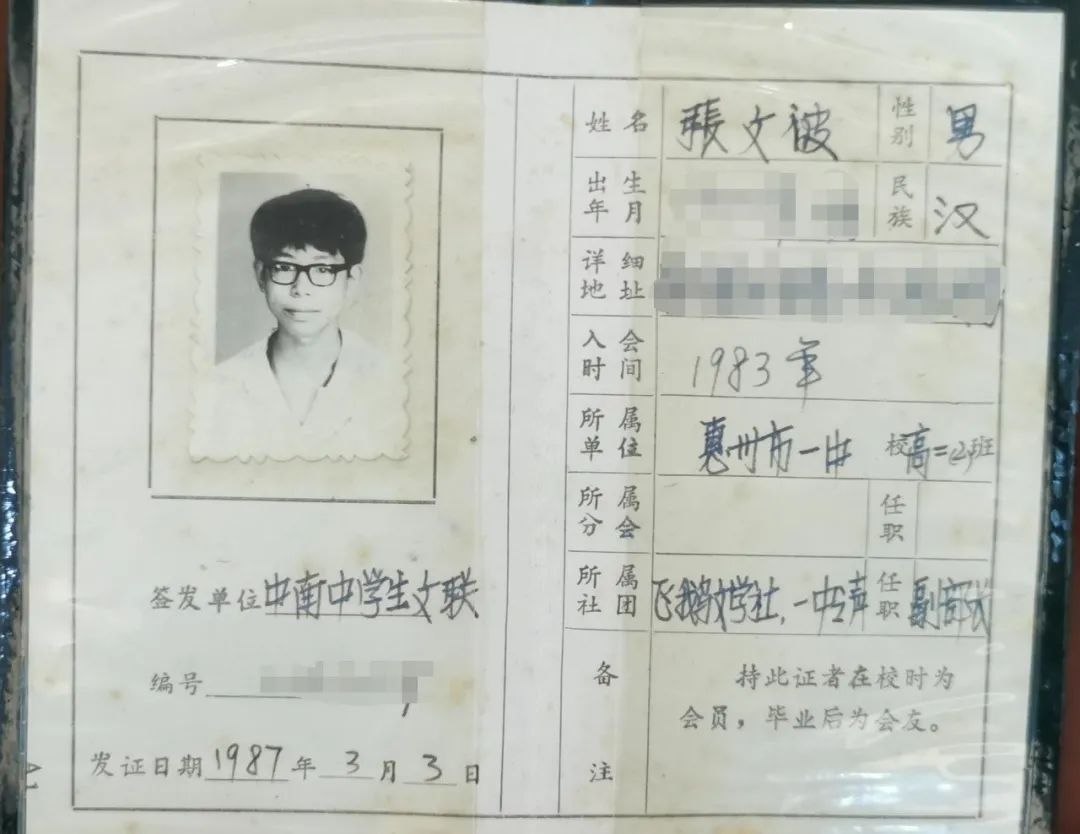 签发单位中南中学生文联
编号
发证日期1987年3月3日
姓名 張文彼 性别 男
出生年月 民族 汉
详细地址
入会时间 1983年
所属单位 惠州市一中 校高二(2)班
所属分会 任职
所属社团 飞鹅文学社,一中之声 任职 副部长
备注 持此证者在校时为
会员，毕业后为会友。